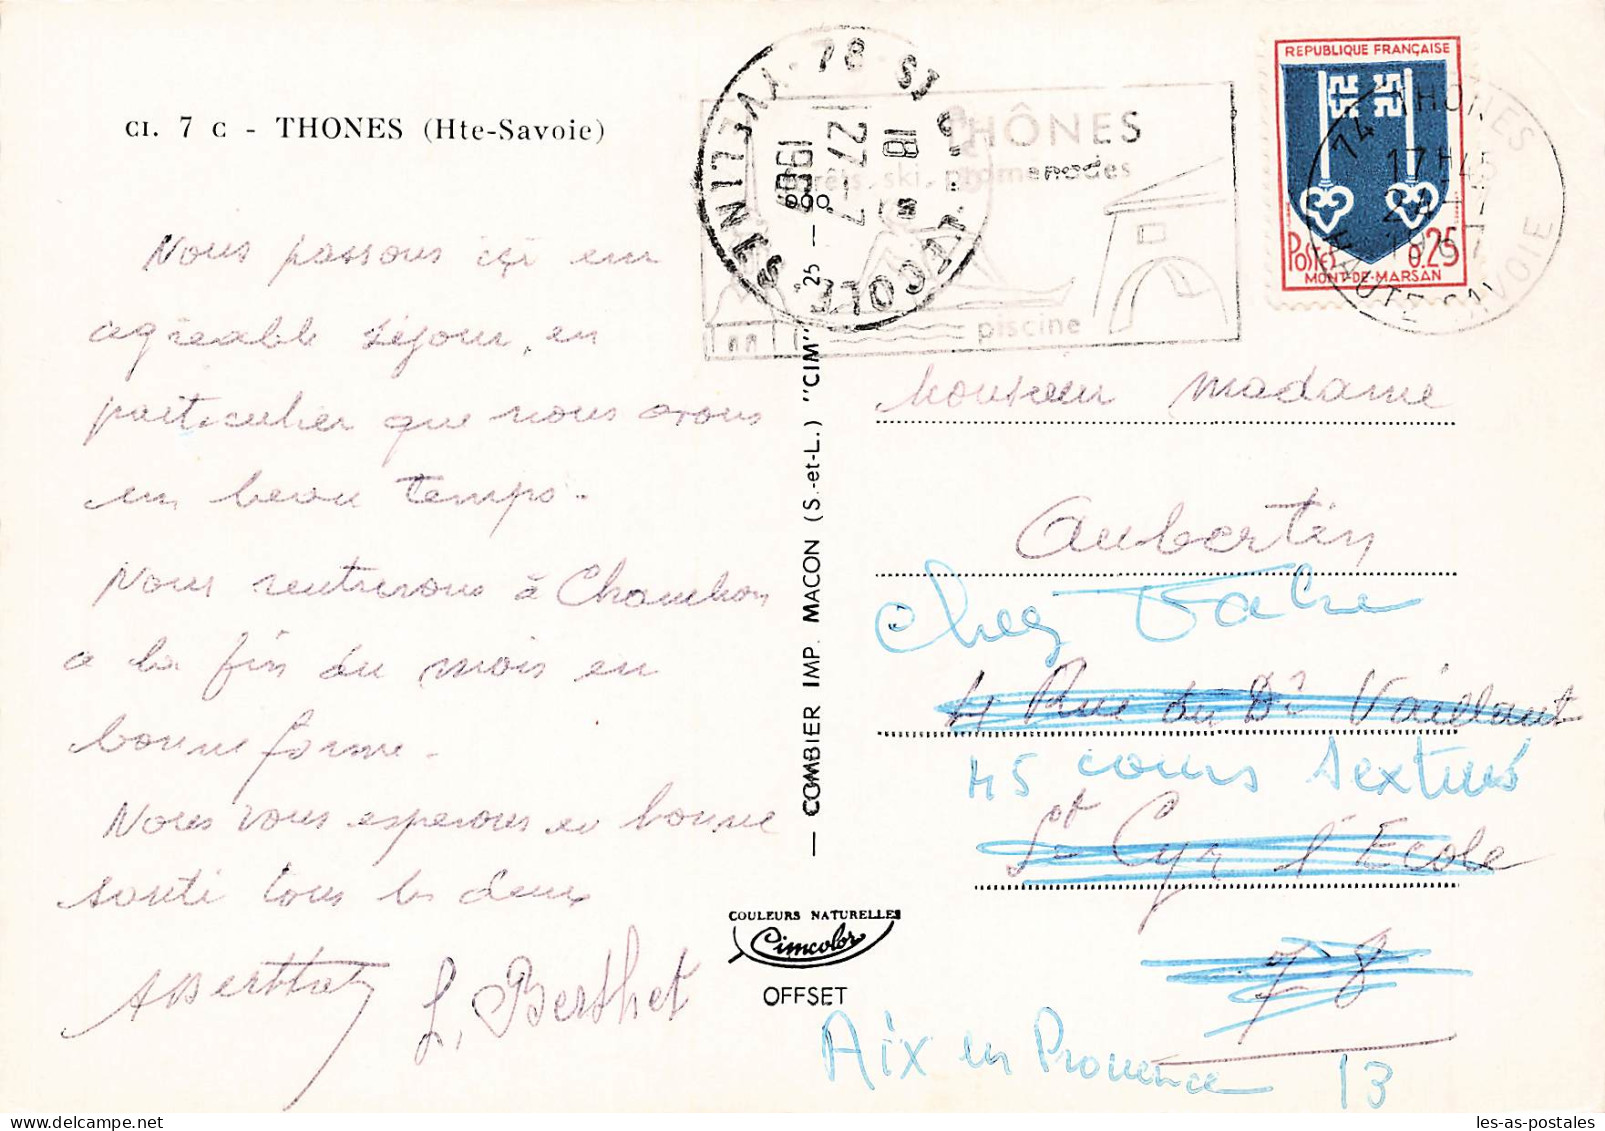 CI. 7 C - THONES (Hte-Savoie)
Nous passons ici un
agréable séjour, en
particulier que nous avons
un beau temps.
Nous rentrerons à Chambon
a la fin du mois en
bonne forme.
Nous vous esperons en bonne
santé tous les deux
ABerthet L. Berthet
— COMBIER IMP. MACON (S.-et-L.) "CIM" — 25 —
COULEURS NATURELLES
Cimcolor
OFFSET
78 - ST CYR L'ECOLE
YVELINES
18 H
27 - 7
1967
THÔNES
forêts, ski, promenades
piscine
REPUBLIQUE FRANÇAISE
POSTES 0,25
MONT-DE-MARSAN
74 THONES
17 H 45
1967
HAUTE SAVOIE
Monsieur Madame
Aubertin
chez Fabre
4 Rue du Dr Vaillant
45 cours Sextius
St Cyr l'Ecole
78
Aix en Provence 13
les-as-postales